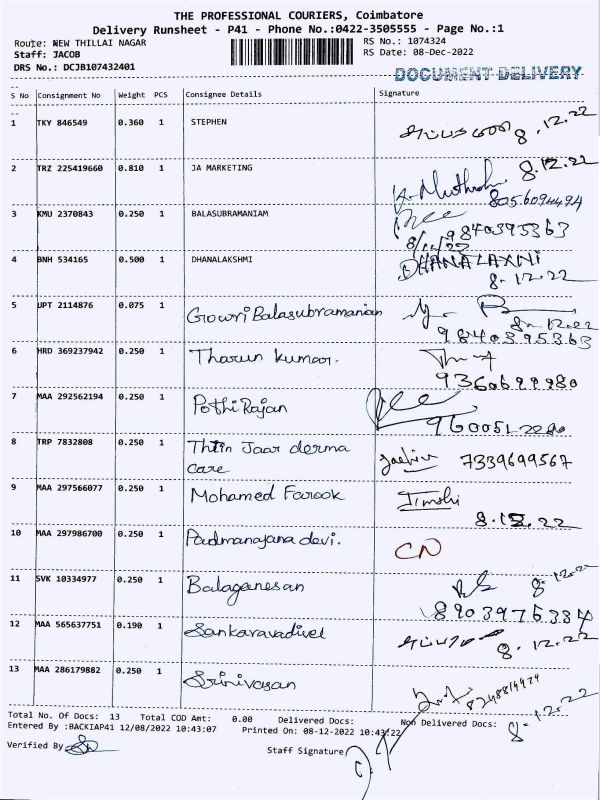 THE PROFESSIONAL COURIERS, Coimbatore
Delivery Runsheet - P41 - Phone No.:0422-3505555 - Page No.:1
Route: NEW THILLAI NAGAR RS No.: 1074324
Staff: JACOB RS Date: 08-Dec-2022
DRS No.: DCJB107432401
DOCUMENT DELIVERY
S No Consignment No Weight PCS Consignee Details Signature
1 TKY 846549 0.360 1 STEPHEN 8.12.22
2 TRZ 225419660 0.810 1 JA MARKETING 8.12.22
8056094494
3 KMU 2370843 0.250 1 BALASUBRAMANIAM
9840395363
8/12/22
4 BNH 534165 0.500 1 DHANALAKSHMI DHANALAXNI
8.12.22
5 UPT 2114876 0.075 1 Gowri Balasubramanian
8-12.22
9840395363
6 HRD 369237942 0.250 1 Tharun kumar.
9360699980
7 MAA 292562194 0.250 1 Pothi Rajan
8 TRP 7832808 0.250 1 Thtin Jaar derma
care 7339699567
9 MAA 297566077 0.250 1 Mohamed Farook
8.12.22
10 MAA 297986700 0.250 1 Padmanajana devi. CN
11 SVK 10334977 0.250 1 Balaganesan 8-12-22
8903975384
12 MAA 565637751 0.190 1 Sankaravadivel 8.12.22
13 MAA 286179882 0.250 1 Srinivasan
8.12.22
Total No. Of Docs: 13 Total COD Amt: 0.00 Delivered Docs: Non Delivered Docs:
Entered By :BACKIAP41 12/08/2022 10:43:07 Printed On: 08-12-2022 10:43:22
Verified By Staff Signature